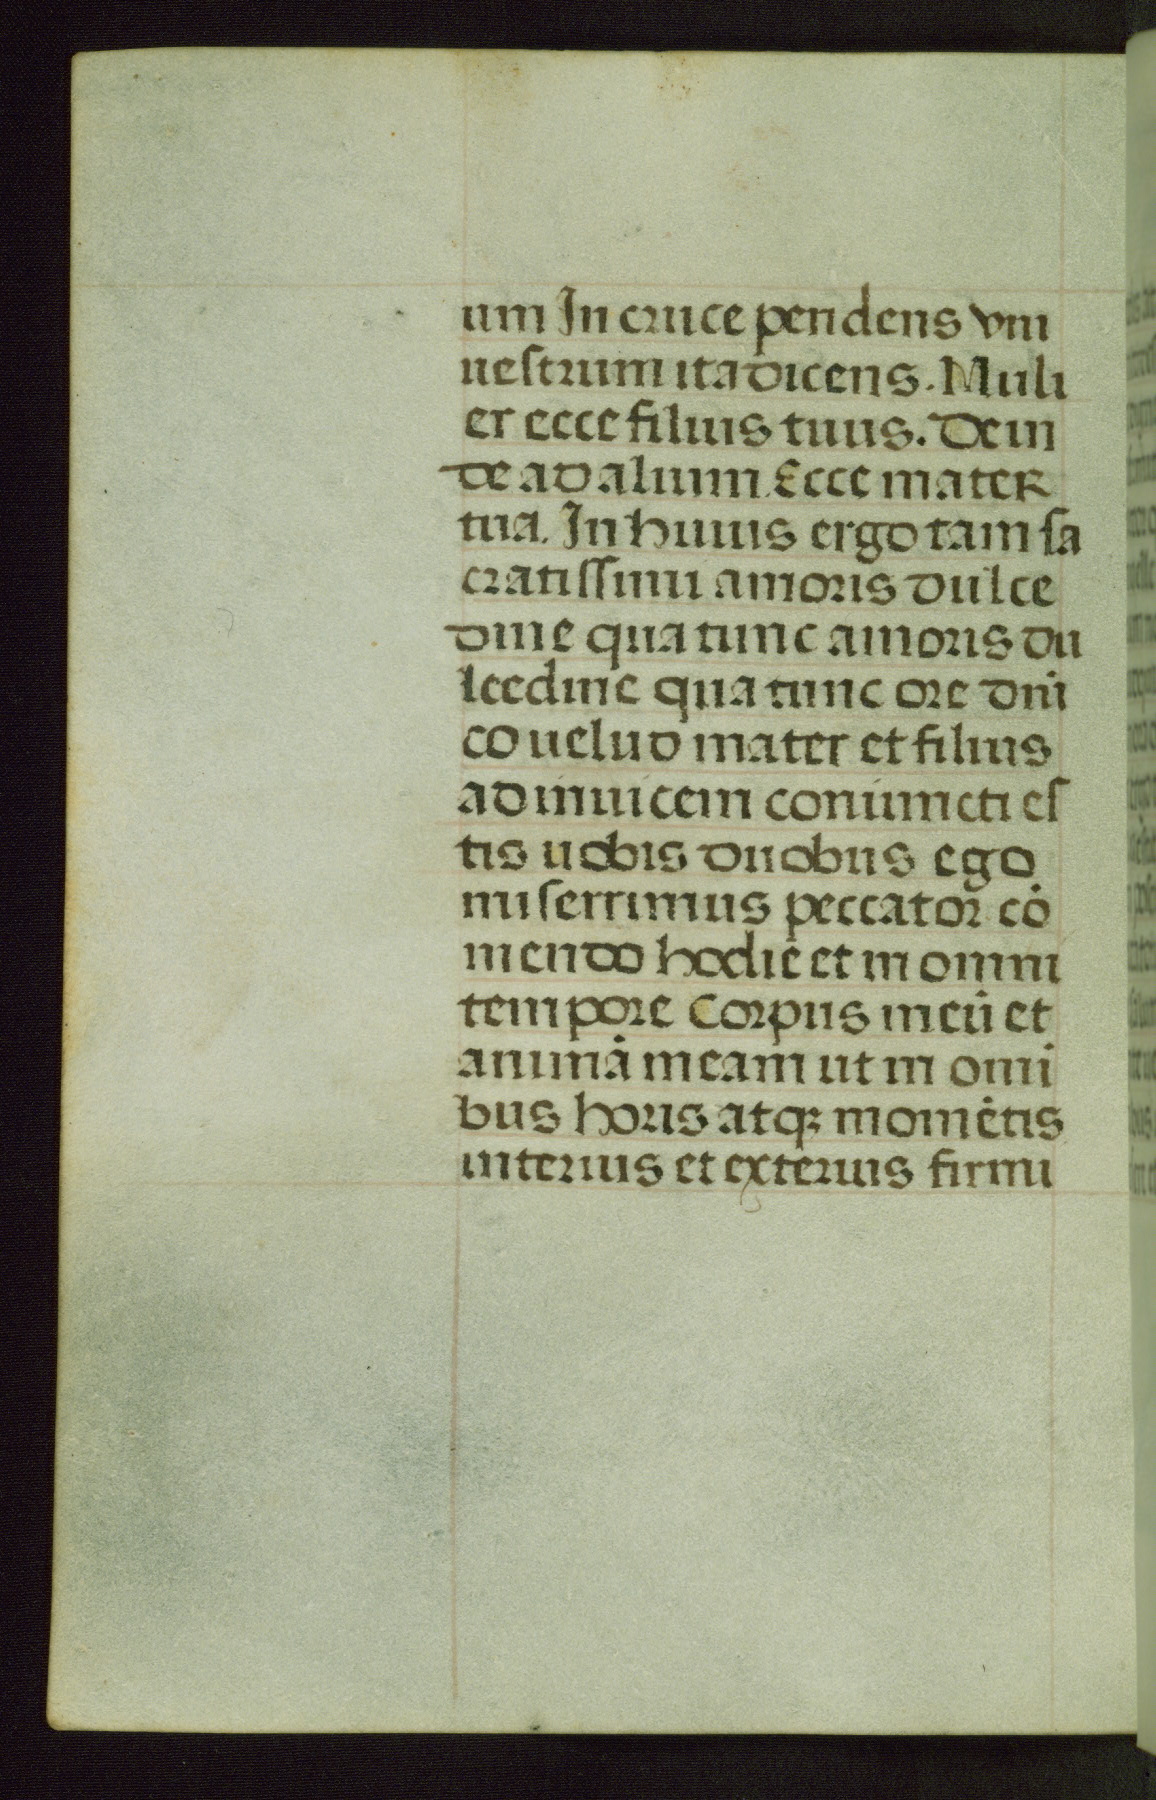 um In cruce pendens vni
uestrum ita dicens. Muli
er ecce filius tuus. Dein
de ad alium. Ecce mater
tua. In huius ergo tam sa
cratissimi amoris dulce
dine qua tunc amoris du
lcedine qua tunc ore dni
co uelud mater et filius
ad inuicem coniuncti es
tis uobis duobus ego
miserrimus peccator cō
mendo hodie et in omni
tempore Corpus meū et
animā meam ut in omi
bus horis atqꝫ momētis
interius et exterius firmi